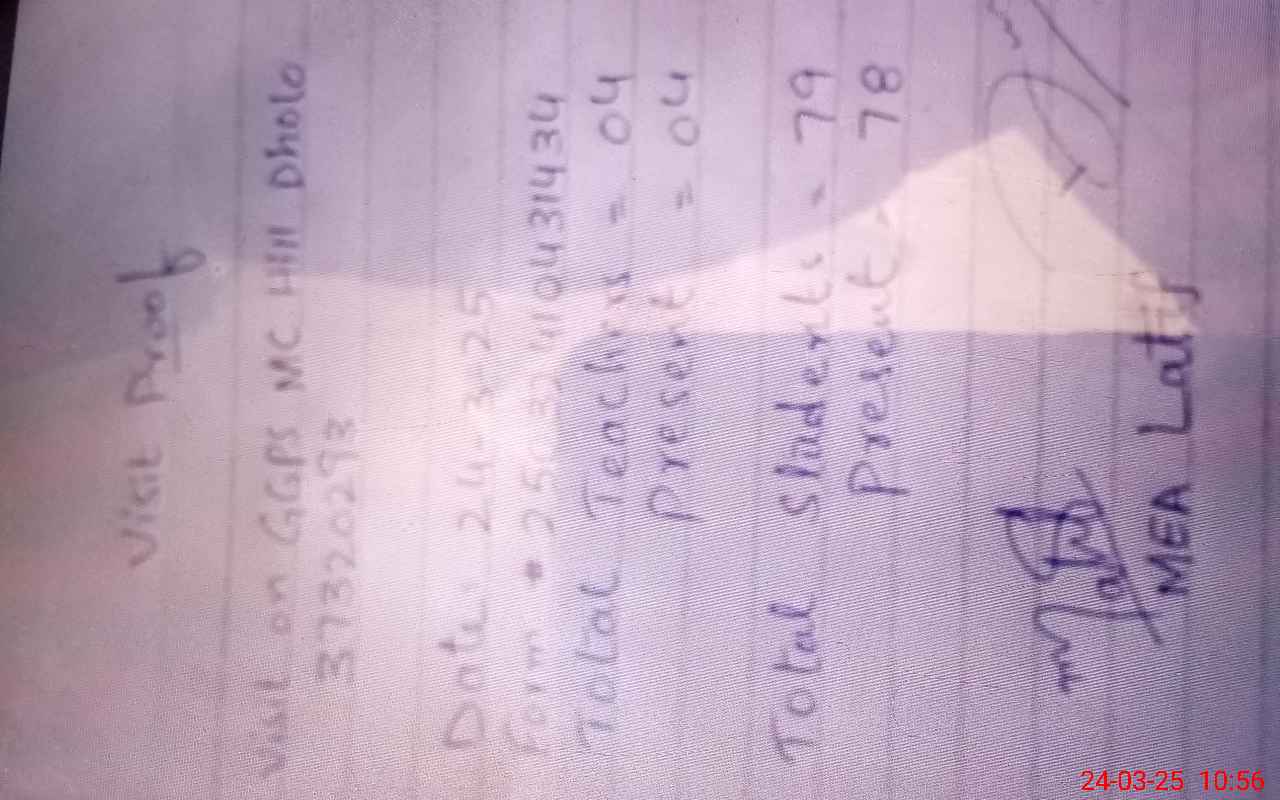 Visit Proof
Visit on GGPS MC HIH Dholo
37320293
Date 24-3-25
Form # 250324104314 34
Total Teachers = 04
Present = 04
Total Students = 79
Present - 78
MEA Latif
24-03-25 10:56